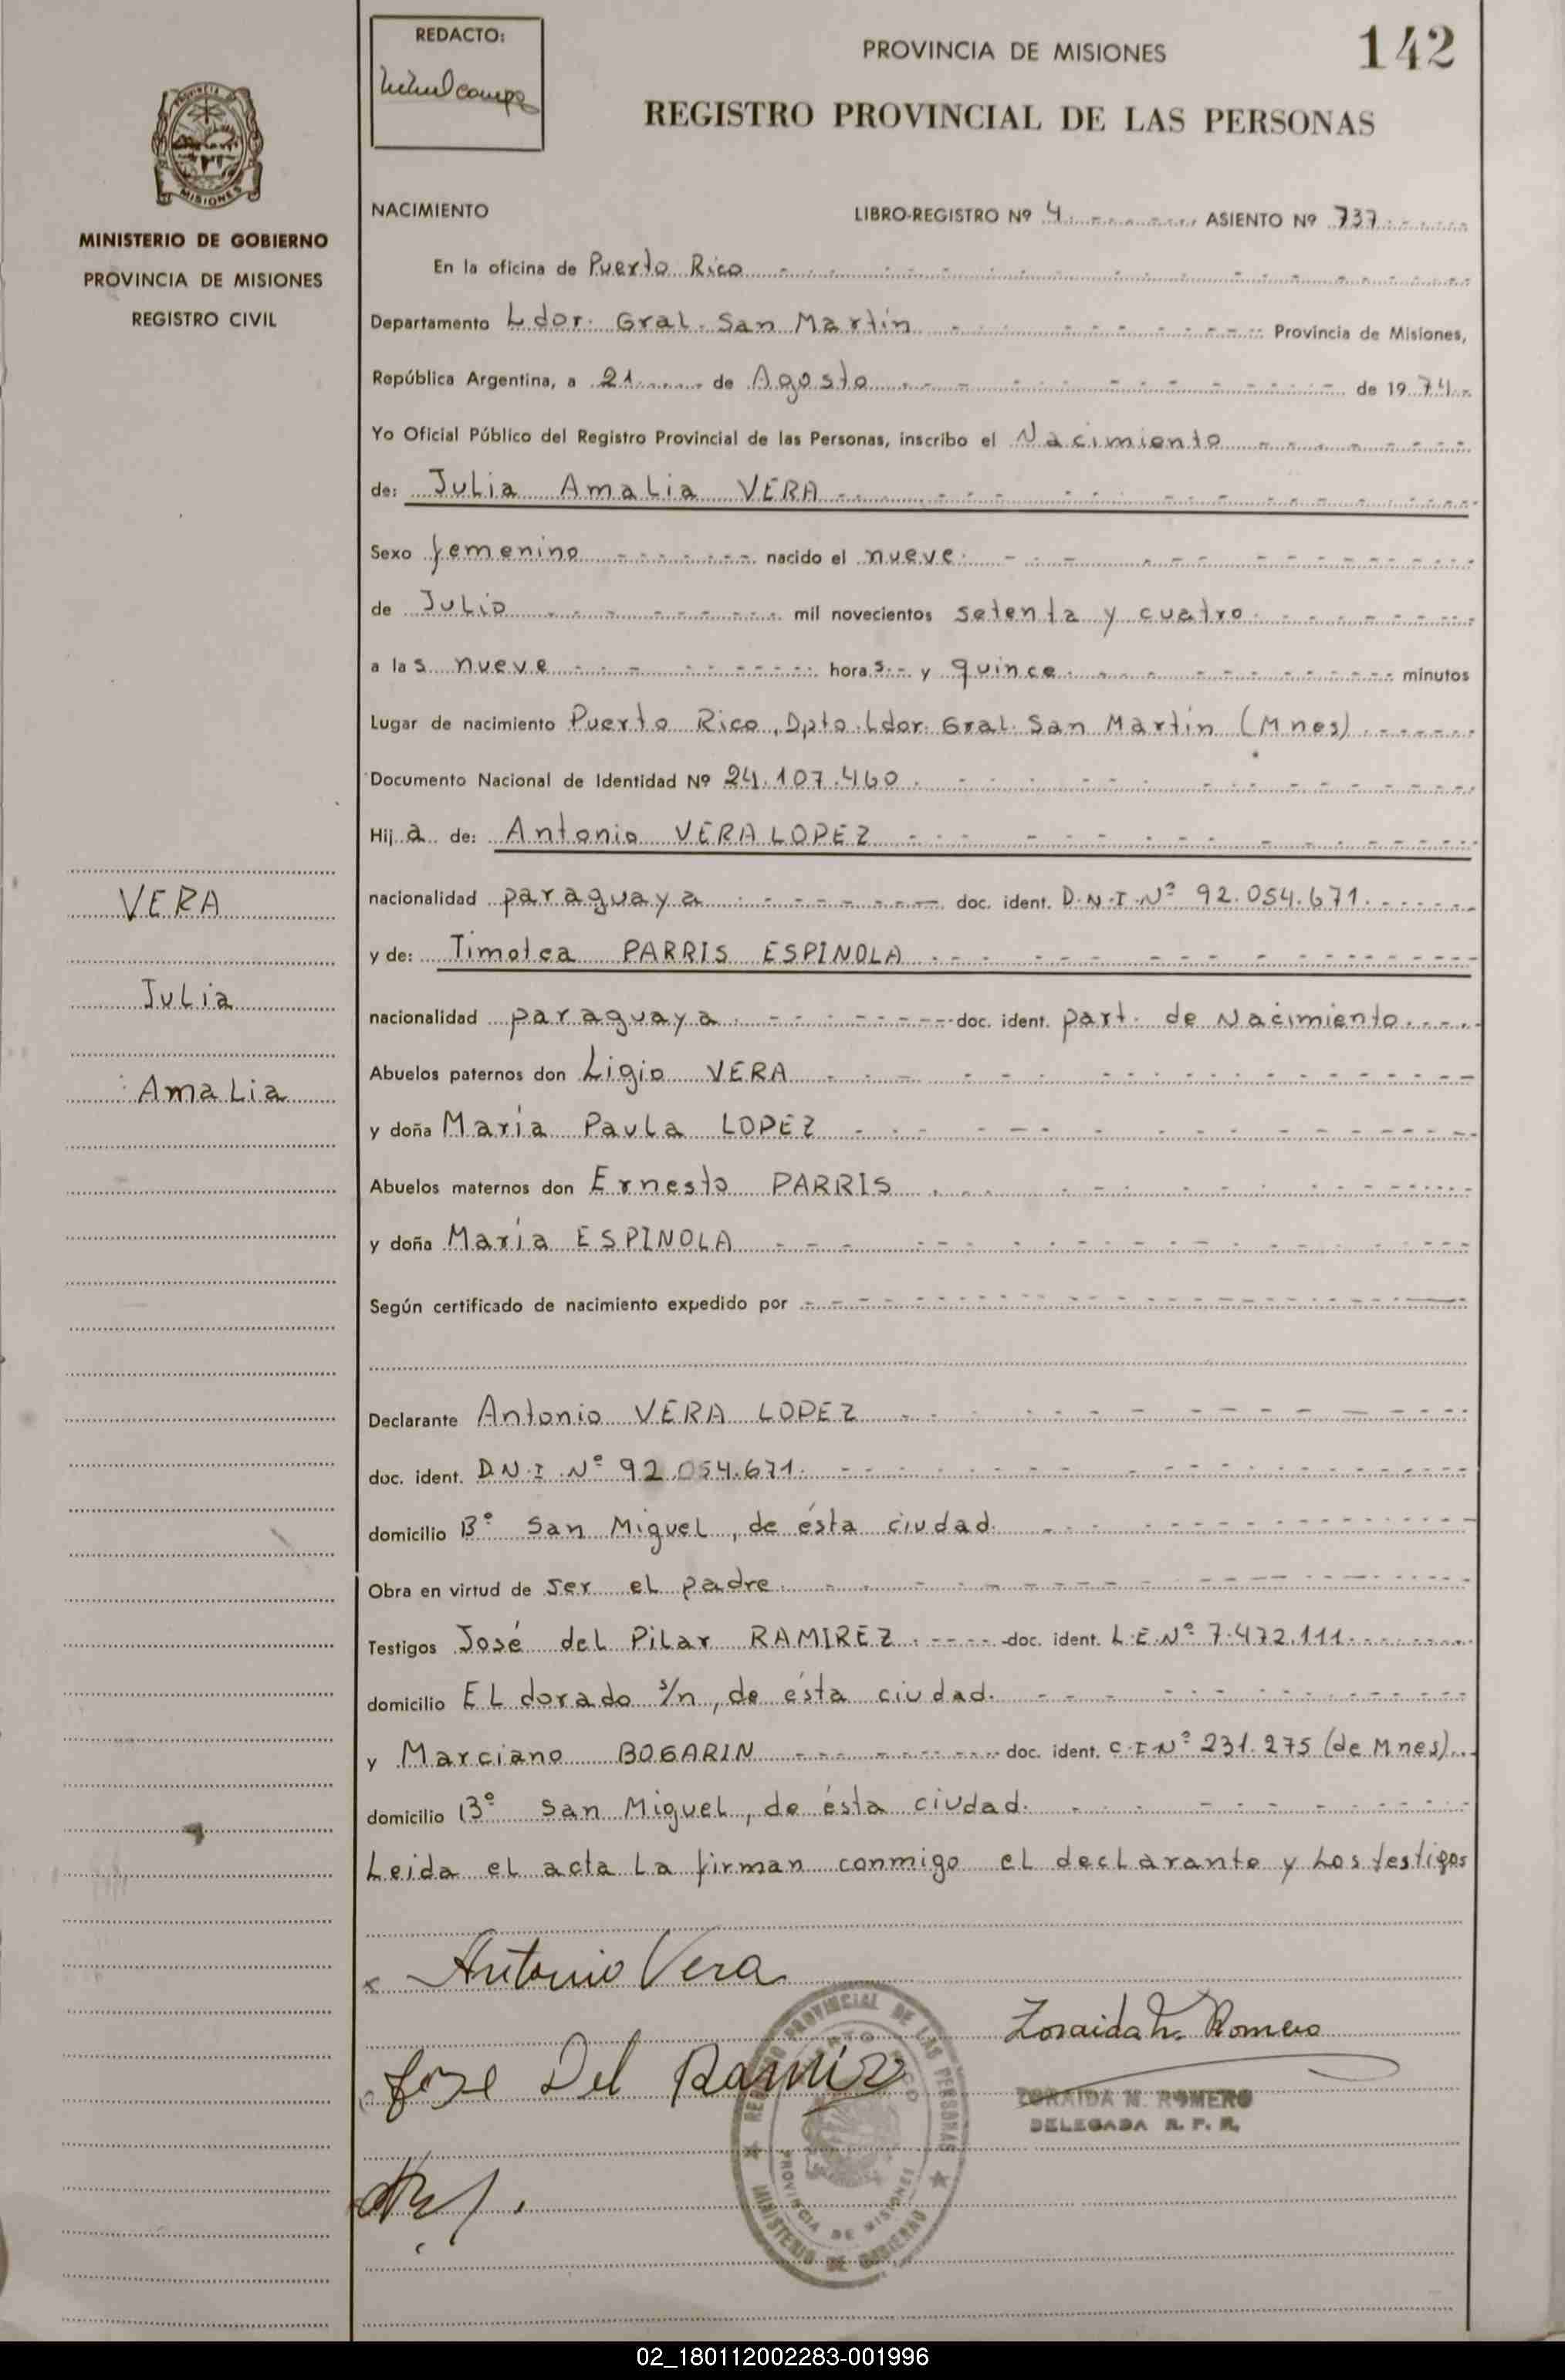 REDACTO:
PROVINCIA DE MISIONES
142
REGISTRO PROVINCIAL DE LAS PERSONAS
PROVINCIA DE
MISIONES
MINISTERIO DE GOBIERNO
PROVINCIA DE MISIONES
REGISTRO CIVIL
NACIMIENTO LIBRO-REGISTRO Nº 4 ASIENTO Nº 737
En la oficina de Puerto Rico
Departamento Ldor. Gral. San Martín Provincia de Misiones,
República Argentina, a 21 de Agosto de 1974
Yo Oficial Público del Registro Provincial de las Personas, inscribo el Nacimiento
de: Julia Amalia VERA
Sexo femenino nacido el nueve
de Julio mil novecientos setenta y cuatro
a las nueve horas y quince minutos
Lugar de nacimiento Puerto Rico, Dpto. Ldor. Gral. San Martín (Mnes)
Documento Nacional de Identidad Nº 24.107.460
Hija de: Antonio VERA LOPEZ
nacionalidad paraguaya doc. ident. D.N.I. Nº 92.054.671
y de: Timotea PARRIS ESPINOLA
nacionalidad paraguaya doc. ident. part. de Nacimiento
Abuelos paternos don Ligio VERA
y doña María Paula LOPEZ
Abuelos maternos don Ernesto PARRIS
y doña María ESPINOLA
Según certificado de nacimiento expedido por
Declarante Antonio VERA LOPEZ
doc. ident. D.N.I. Nº 92.054.671
domicilio Bº San Miguel, de ésta ciudad.
Obra en virtud de ser el padre
Testigos José del Pilar RAMIREZ doc. ident. L.E. Nº 7.472.111
domicilio ELdorado s/n, de ésta ciudad.
y Marciano BOGARIN doc. ident. C.I. Nº 231.275 (de Mnes)
domicilio Bº San Miguel, de ésta ciudad.
Leida el acta la firman conmigo el declarante y los testigos
VERA
Julia
Amalia
x Antonio Vera
Zoraida N. Romero
Jose Del Ramirz
ZORAIDA N. ROMERO
DELEGADA R. P. P.
REGISTRO PROVINCIAL DE LAS PERSONAS
PUERTO RICO
PROVINCIA DE MISIONES
MINISTERIO DE GOBIERNO
02_180112002283-001996